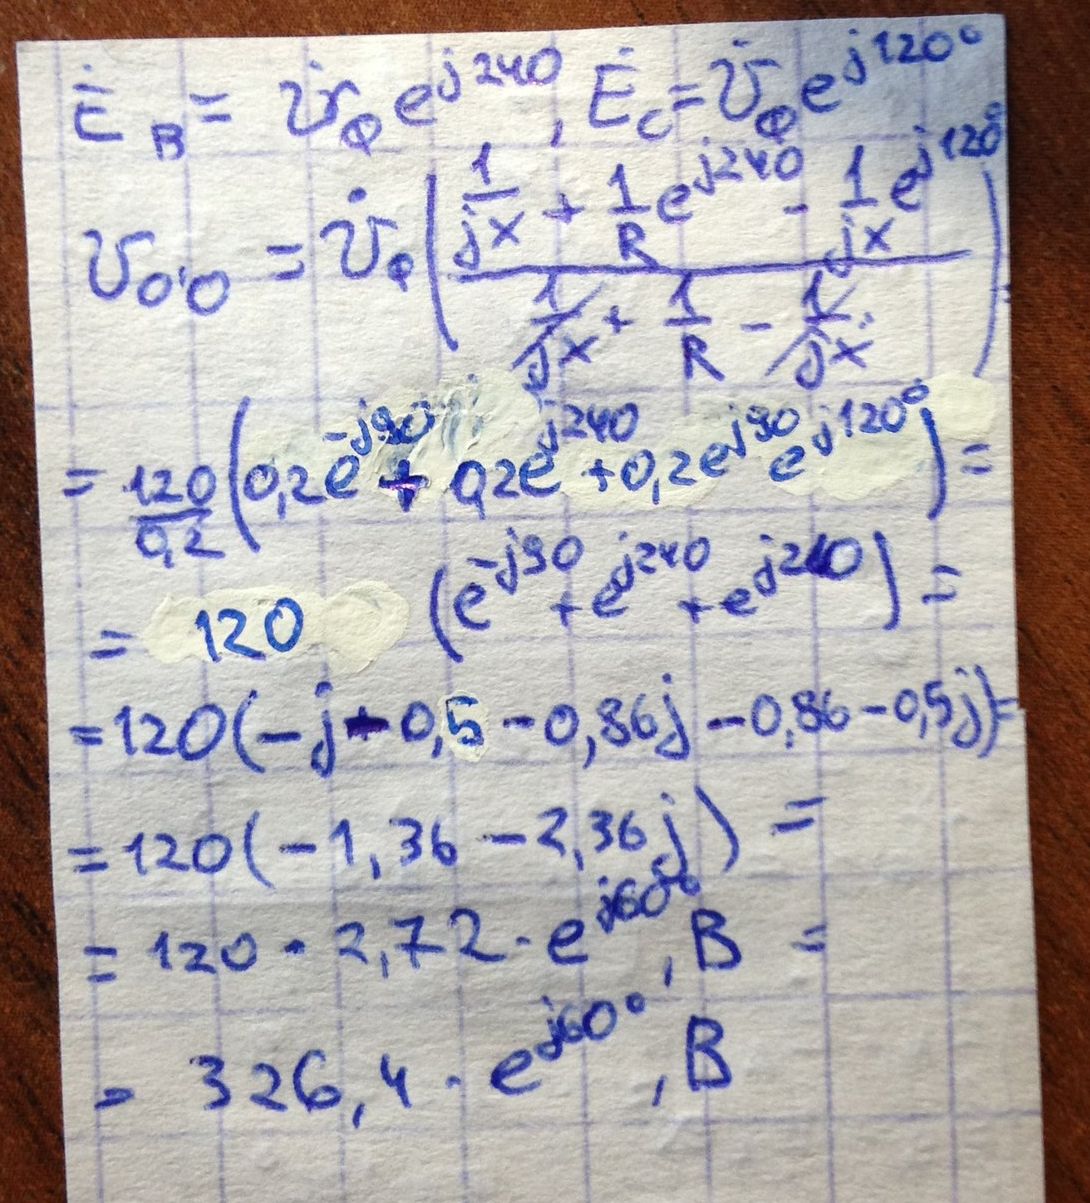 Ė_B = U̇_Φ e^{j240}, Ė_C = U̇_Φ e^{j120°}
U_{0'0} = U̇_Φ ( (1/jx + 1/R e^{j240} - 1/jx e^{j120°}) / (1/jx + 1/R - 1/jx) )
= 120/0,2 (0,2e^{-j90} + 0,2e^{j240} + 0,2e^{j90} e^{j120°}) =
= 120 (e^{-j90} + e^{j240} + e^{j210}) =
= 120(-j - 0,5 - 0,86j - 0,86 - 0,5j) =
= 120(-1,36 - 2,36j) =
= 120 · 2,72 · e^{j60°}, В =
= 326,4 · e^{j60°}, В